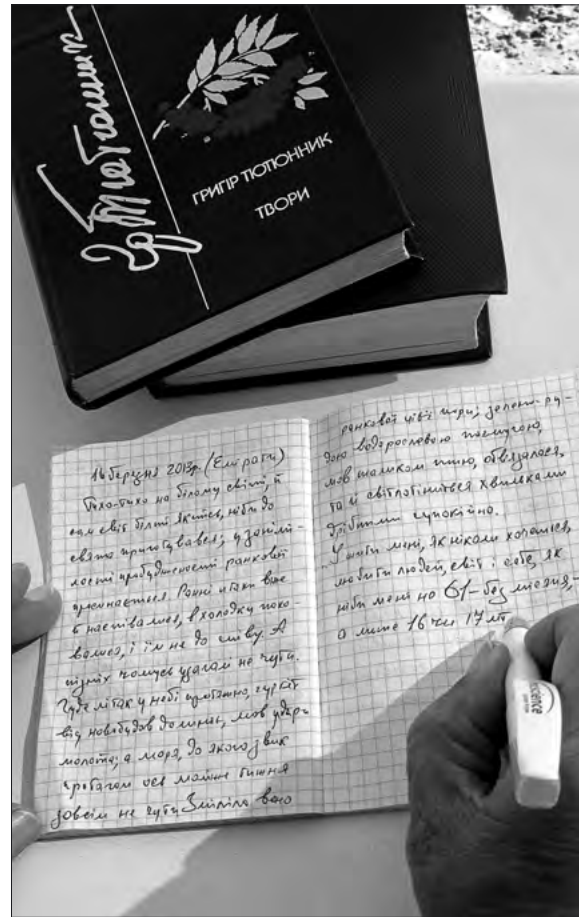 Гр Тютюнник
ГРИГІР ТЮТЮННИК
ТВОРИ
16 березня 2013р. (Емірати)
Тихо-тихо на білому світі, й
сам світ білий якийсь, ніби до
свята приготувався; у
лості пробудженості ранкової
прочинається. Ранні птахи вже
й наспівались, в холодку похо-
вались, і їм не до співу. А
пізніх чомусь узагалі не чути.
Гуде літак у небі протяжно, гуркіт
від новобудов долинає, мов удари
молота; а моря, до якого звик
протягом ось майже тижня
зовсім не чути. Зміліло воно
ранкової цієї пори, зелено-ру-
дою водорослевою посмугою,
мов шаликом шию, обв'язалося,
та й світлотіниться хвильками
дрібними супокійно.
І чити мені, як ніколи хочеться,
любити людей, світ і себе, як
ніби мені не 61-без місяця, -
а лише 16 чи 17 літ